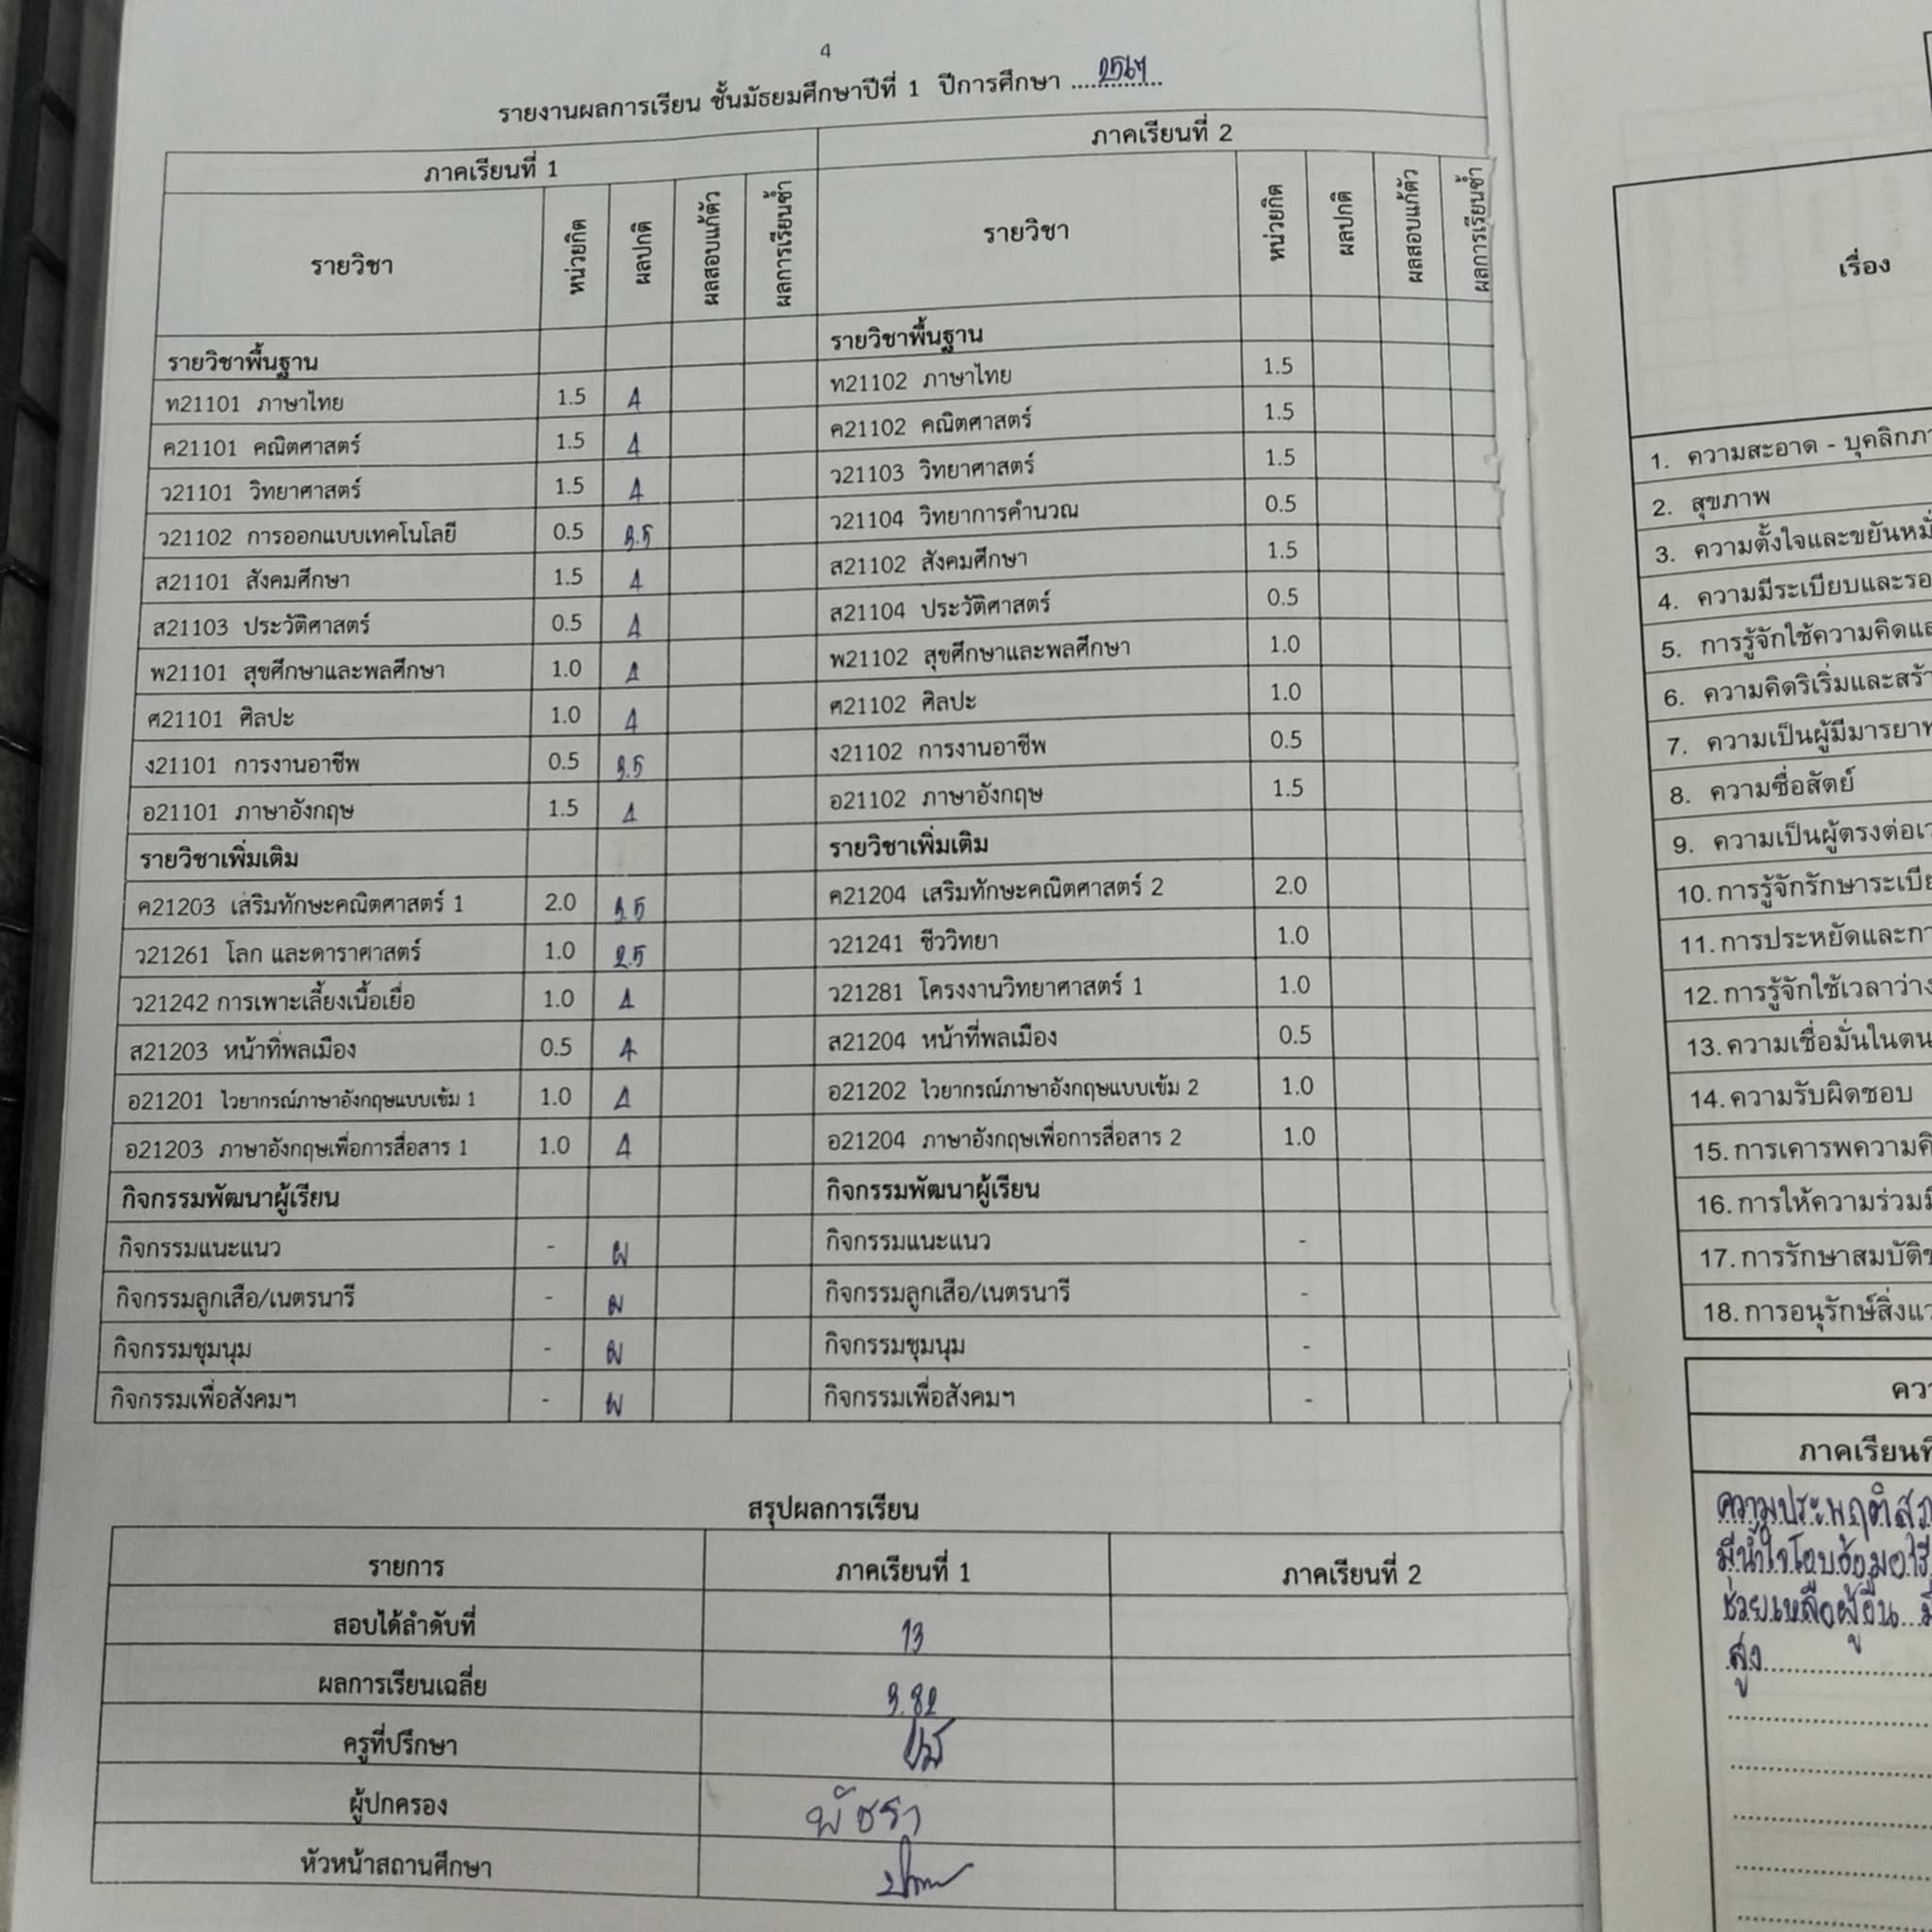 4
รายงานผลการเรียน ชั้นมัธยมศึกษาปีที่ 1 ปีการศึกษา 2567
ภาคเรียนที่ 1 ภาคเรียนที่ 2
รายวิชา หน่วยกิต ผลปกติ ผลสอบแก้ตัว ผลการเรียนซ้ำ รายวิชา หน่วยกิต ผลปกติ ผลสอบแก้ตัว ผลการเรียนซ้ำ
รายวิชาพื้นฐาน รายวิชาพื้นฐาน
ท21101 ภาษาไทย 1.5 4 ท21102 ภาษาไทย 1.5
ค21101 คณิตศาสตร์ 1.5 4 ค21102 คณิตศาสตร์ 1.5
ว21101 วิทยาศาสตร์ 1.5 4 ว21103 วิทยาศาสตร์ 1.5
ว21102 การออกแบบเทคโนโลยี 0.5 3.5 ว21104 วิทยาการคำนวณ 0.5
ส21101 สังคมศึกษา 1.5 4 ส21102 สังคมศึกษา 1.5
ส21103 ประวัติศาสตร์ 0.5 4 ส21104 ประวัติศาสตร์ 0.5
พ21101 สุขศึกษาและพลศึกษา 1.0 4 พ21102 สุขศึกษาและพลศึกษา 1.0
ศ21101 ศิลปะ 1.0 4 ศ21102 ศิลปะ 1.0
ง21101 การงานอาชีพ 0.5 3.5 ง21102 การงานอาชีพ 0.5
อ21101 ภาษาอังกฤษ 1.5 4 อ21102 ภาษาอังกฤษ 1.5
รายวิชาเพิ่มเติม รายวิชาเพิ่มเติม
ค21203 เสริมทักษะคณิตศาสตร์ 1 2.0 3.5 ค21204 เสริมทักษะคณิตศาสตร์ 2 2.0
ว21261 โลก และดาราศาสตร์ 1.0 2.5 ว21241 ชีววิทยา 1.0
ว21242 การเพาะเลี้ยงเนื้อเยื่อ 1.0 4 ว21281 โครงงานวิทยาศาสตร์ 1 1.0
ส21203 หน้าที่พลเมือง 0.5 4 ส21204 หน้าที่พลเมือง 0.5
อ21201 ไวยากรณ์ภาษาอังกฤษแบบเข้ม 1 1.0 4 อ21202 ไวยากรณ์ภาษาอังกฤษแบบเข้ม 2 1.0
อ21203 ภาษาอังกฤษเพื่อการสื่อสาร 1 1.0 4 อ21204 ภาษาอังกฤษเพื่อการสื่อสาร 2 1.0
กิจกรรมพัฒนาผู้เรียน กิจกรรมพัฒนาผู้เรียน
กิจกรรมแนะแนว - ผ กิจกรรมแนะแนว -
กิจกรรมลูกเสือ/เนตรนารี - ผ กิจกรรมลูกเสือ/เนตรนารี -
กิจกรรมชุมนุม - ผ กิจกรรมชุมนุม -
กิจกรรมเพื่อสังคมฯ - ผ กิจกรรมเพื่อสังคมฯ -
สรุปผลการเรียน
รายการ ภาคเรียนที่ 1 ภาคเรียนที่ 2
สอบได้ลำดับที่ 13
ผลการเรียนเฉลี่ย 3.82
ครูที่ปรึกษา
ผู้ปกครอง พัชรา
หัวหน้าสถานศึกษา
เรื่อง
1. ความสะอาด - บุคลิกภา
2. สุขภาพ
3. ความตั้งใจและขยันหมั่
4. ความมีระเบียบและรอ
5. การรู้จักใช้ความคิดแล
6. ความคิดริเริ่มและสร้า
7. ความเป็นผู้มีมารยาท
8. ความซื่อสัตย์
9. ความเป็นผู้ตรงต่อเว
10. การรู้จักรักษาระเบีย
11. การประหยัดและกา
12. การรู้จักใช้เวลาว่าง
13. ความเชื่อมั่นในตน
14. ความรับผิดชอบ
15. การเคารพความคิ
16. การให้ความร่วมมื
17. การรักษาสมบัติข
18. การอนุรักษ์สิ่งแว
ควา
ภาคเรียนที่
ความประพฤติ
มีน้ำใจโอบอ้อมอารี
ช่วยเหลือผู้อื่น
สูง